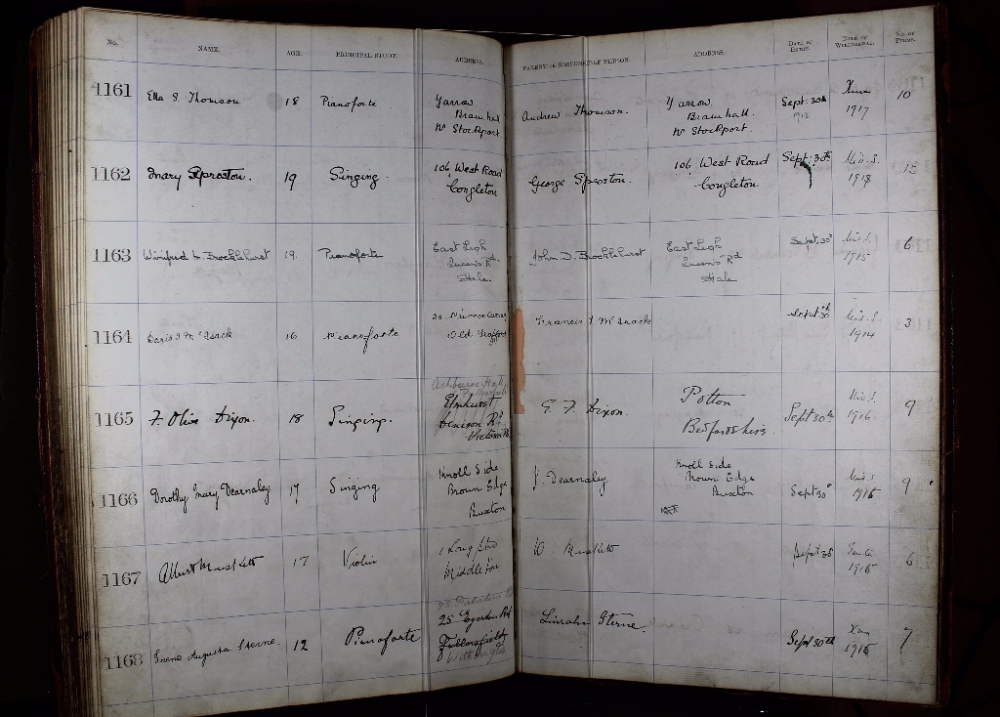 No. NAME. AGE. PRINCIPAL STUDY. ADDRESS. PARENT or RESPONSIBLE PERSON. ADDRESS. DATE OF ENTRY. DATE OF WITHDRAWAL. NO. OF TERMS.
1161 Ella S. Thomson 18 Pianoforte Yarrow Andrew Thomson. Yarrow Sept: 30th Xmas 10
Bramhall Bramhall. 1912 1917
Nr Stockport Nr Stockport.
1162 Mary Sproston. 19 Singing. 106 West Road George Sproston. 106 West Road Sept: 30th Mids. 15
Congleton Congleton 1918
1163 Winifred M Brocklehurst 19. Pianoforte East Leigh John D. Brocklehurst East Leigh Sept: 30th Mids. 6
Queen's Rd Queen's Rd 1915
Hale. Hale
1164 16 Pianoforte Francis Sept 30th Mids. 3
Old Trafford 1914
1165 F. Olive Dixon. 18 Singing. Ashburne Hall E. F. Dixon. Potton Sept 30th Mids. 9
Elmhurst Bedfordshire 1916
Denison Rd
Victoria Pk
1166 Dorothy Mary Dearnaley 17 Singing Knoll Side J. Dearnaley Knoll Side Sept 30th Mids 9
Brown Edge Brown Edge 1916
Buxton Buxton
1167 Albert 17 Violin Sept 30 6
Middleton 1915
1168 Augusta Sterne. 12 Pianoforte 25 Rd Lincoln Sterne. Sept 30th 7
Fallowfield 1916
Withington